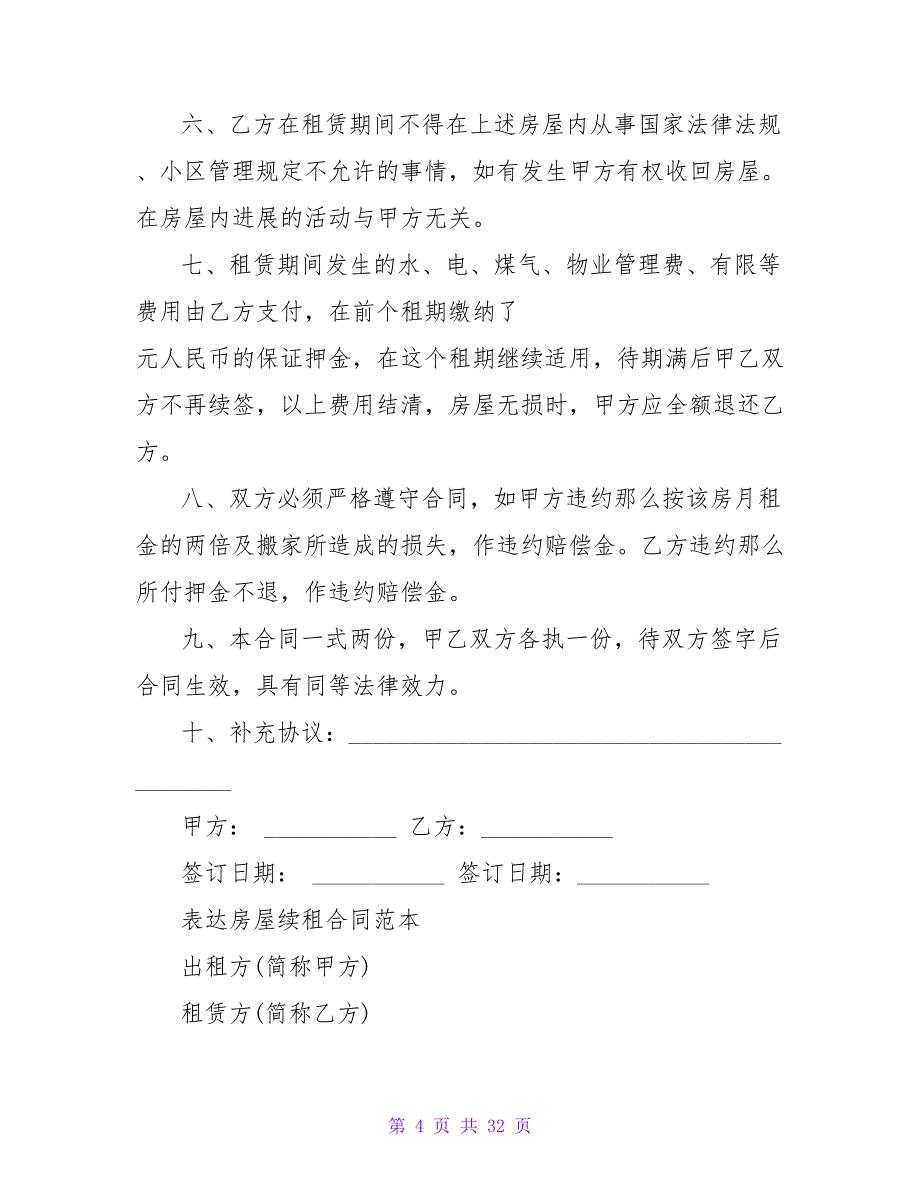 六、乙方在租赁期间不得在上述房屋内从事国家法律法规
、小区管理规定不允许的事情，如有发生甲方有权收回房屋。
在房屋内进展的活动与甲方无关。
七、租赁期间发生的水、电、煤气、物业管理费、有限等
费用由乙方支付，在前个租期缴纳了
元人民币的保证押金，在这个租期继续适用，待期满后甲乙双
方不再续签，以上费用结清，房屋无损时，甲方应全额退还乙
方。
八、双方必须严格遵守合同，如甲方违约那么按该房月租
金的两倍及搬家所造成的损失，作违约赔偿金。乙方违约那么
所付押金不退，作违约赔偿金。
九、本合同一式两份，甲乙双方各执一份，待双方签字后
合同生效，具有同等法律效力。
十、补充协议：____________________________________
________
甲方： ___________ 乙方：___________
签订日期： ___________ 签订日期：___________
表达房屋续租合同范本
出租方(简称甲方)
租赁方(简称乙方)
第 4 页 共 32 页